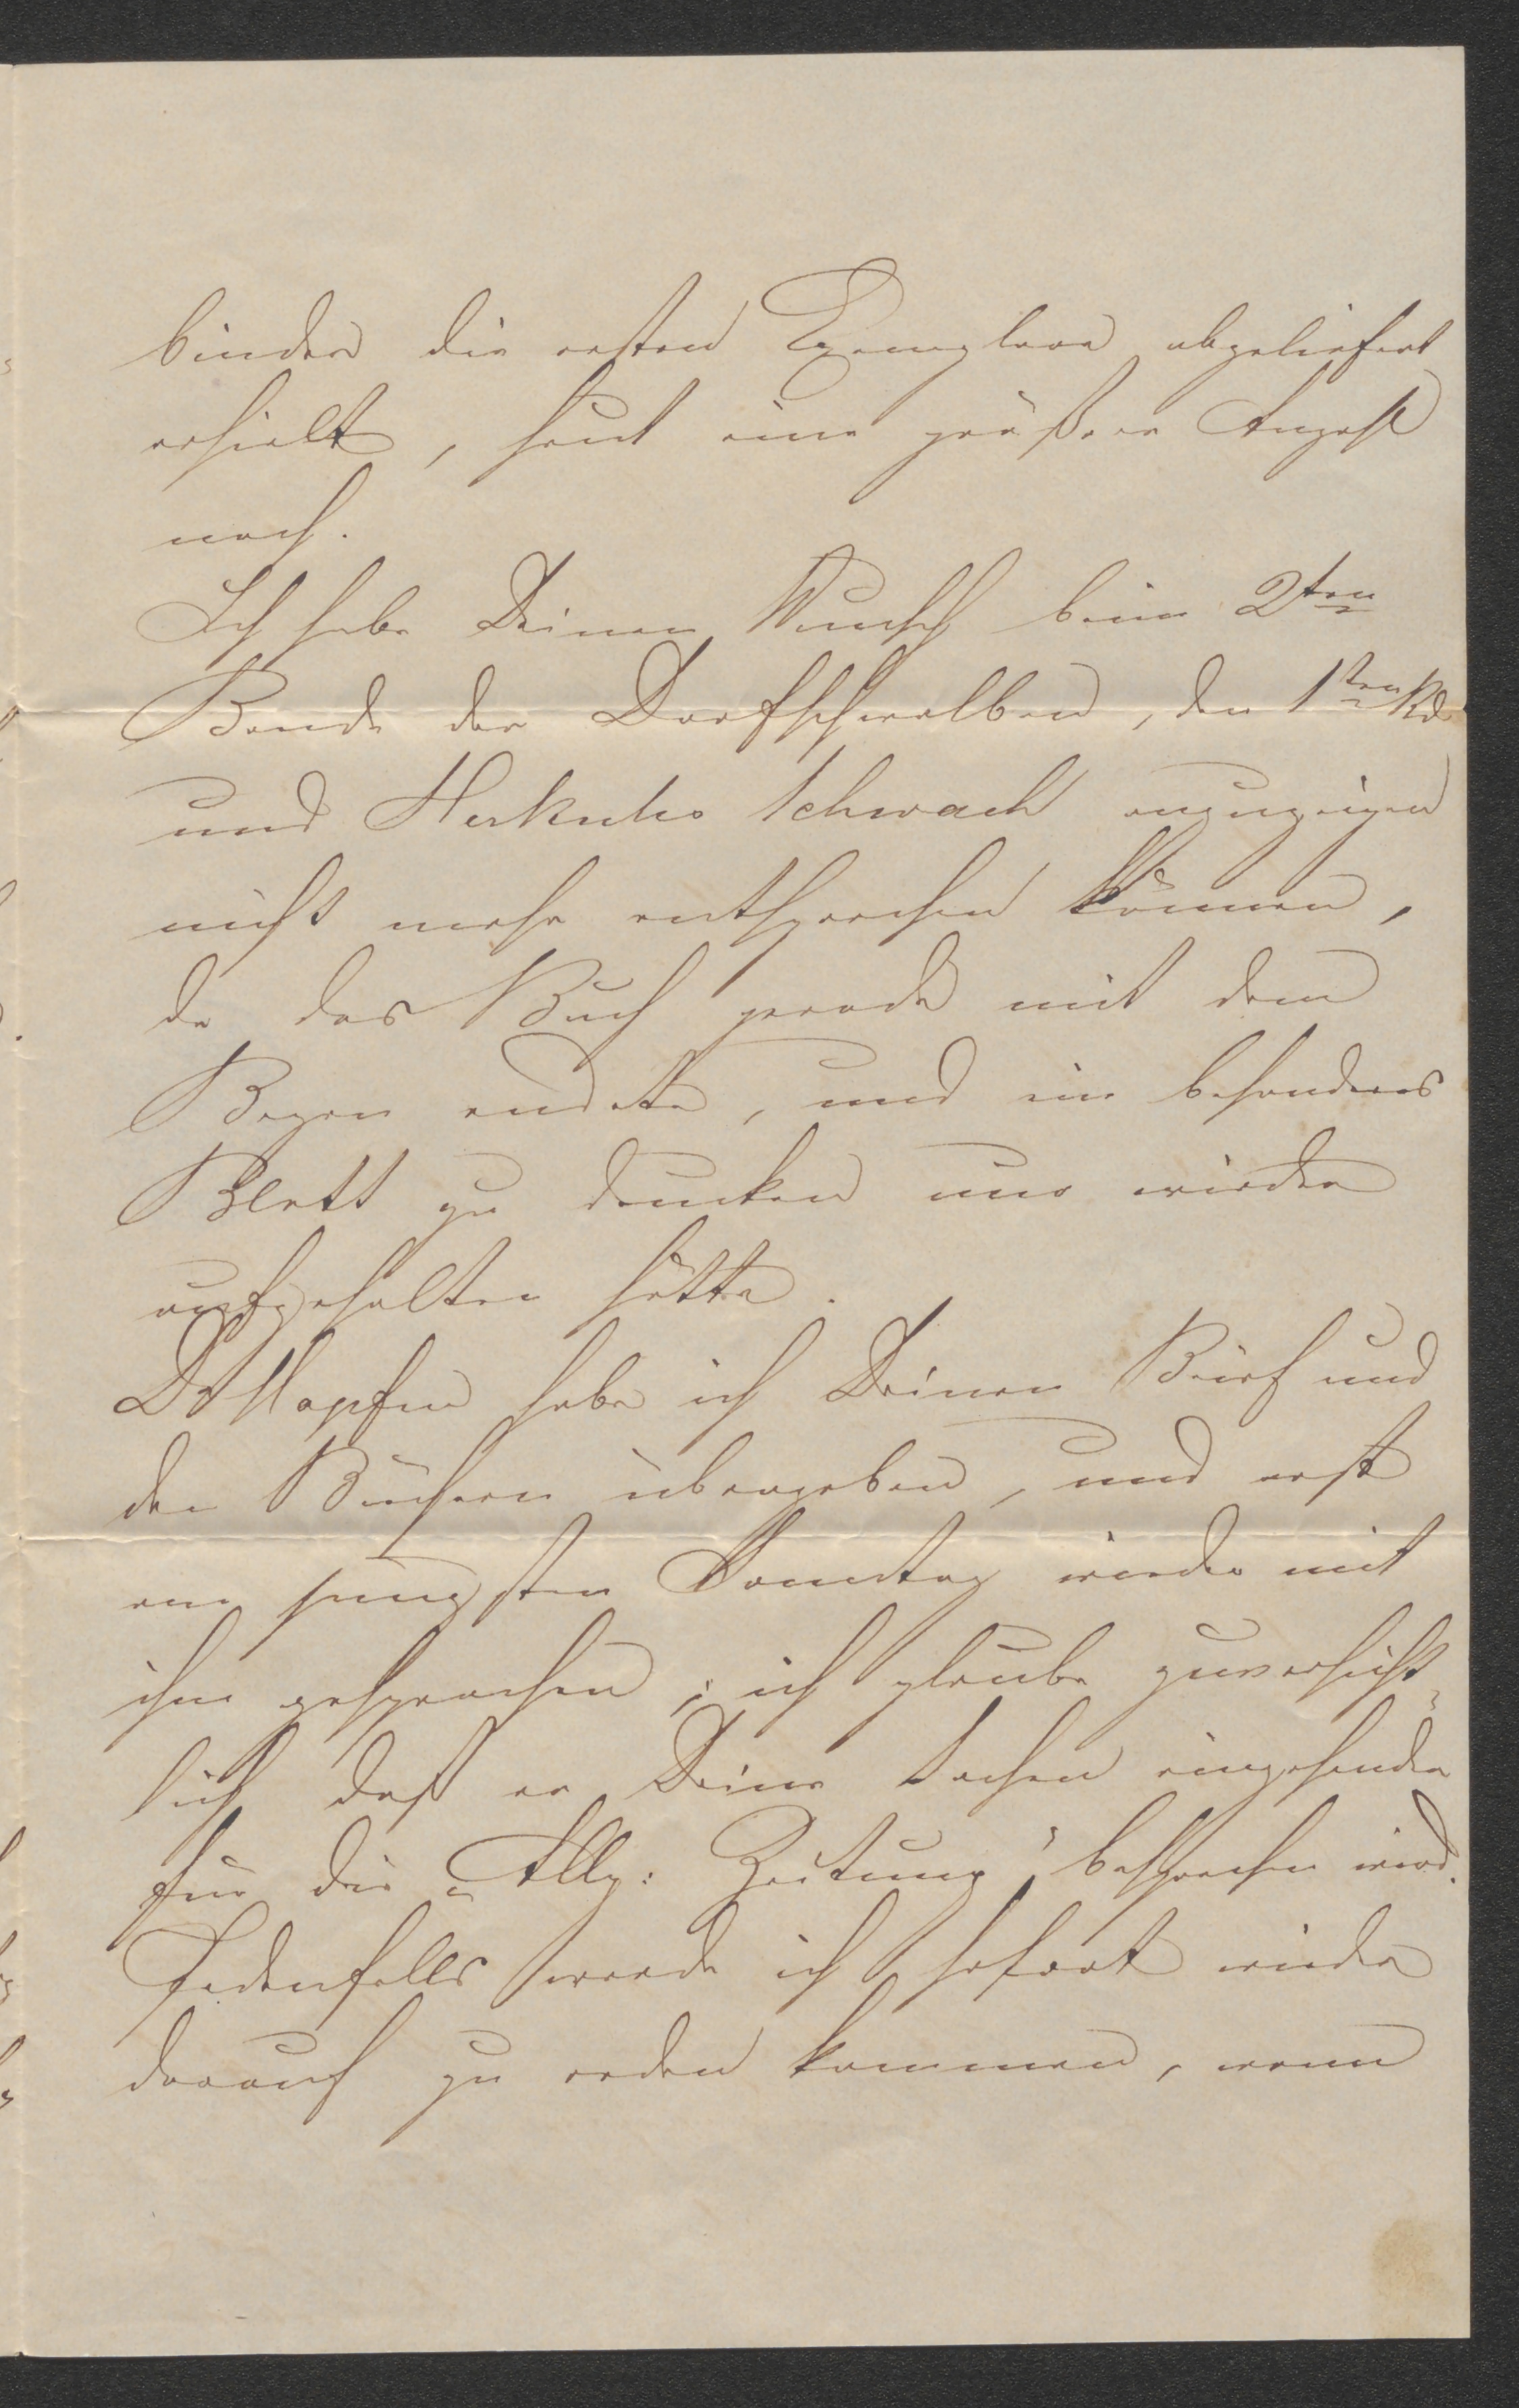 binder die ersten Exemplare abgeliefert
erhielt, heut eine größere Anzahl
nach.
Ich habe Deinem Wunsch beim 2ten
Bande der Dorfschwalben, den 1ten Bd
und Herkules Schwach anzuzeigen
nicht mehr entsprechen können,
da das Buch gerade mit dem
Bogen endete, und ein besonderes
Blatt zu drucken uns wieder
aufgehalten hätte.
Dr Hopfen habe ich Deinen Brief und
den Büchern übergeben, und erst
am jüngsten Sonntag wieder mit
ihm gesprochen; ich glaube zuversicht-
lich daß er Deine Sachen eingehender
für die „Allg: Zeitung“ besprechen wird.
Jedenfalls werde ich sofort wieder
darauf zu reden kommen, wenn